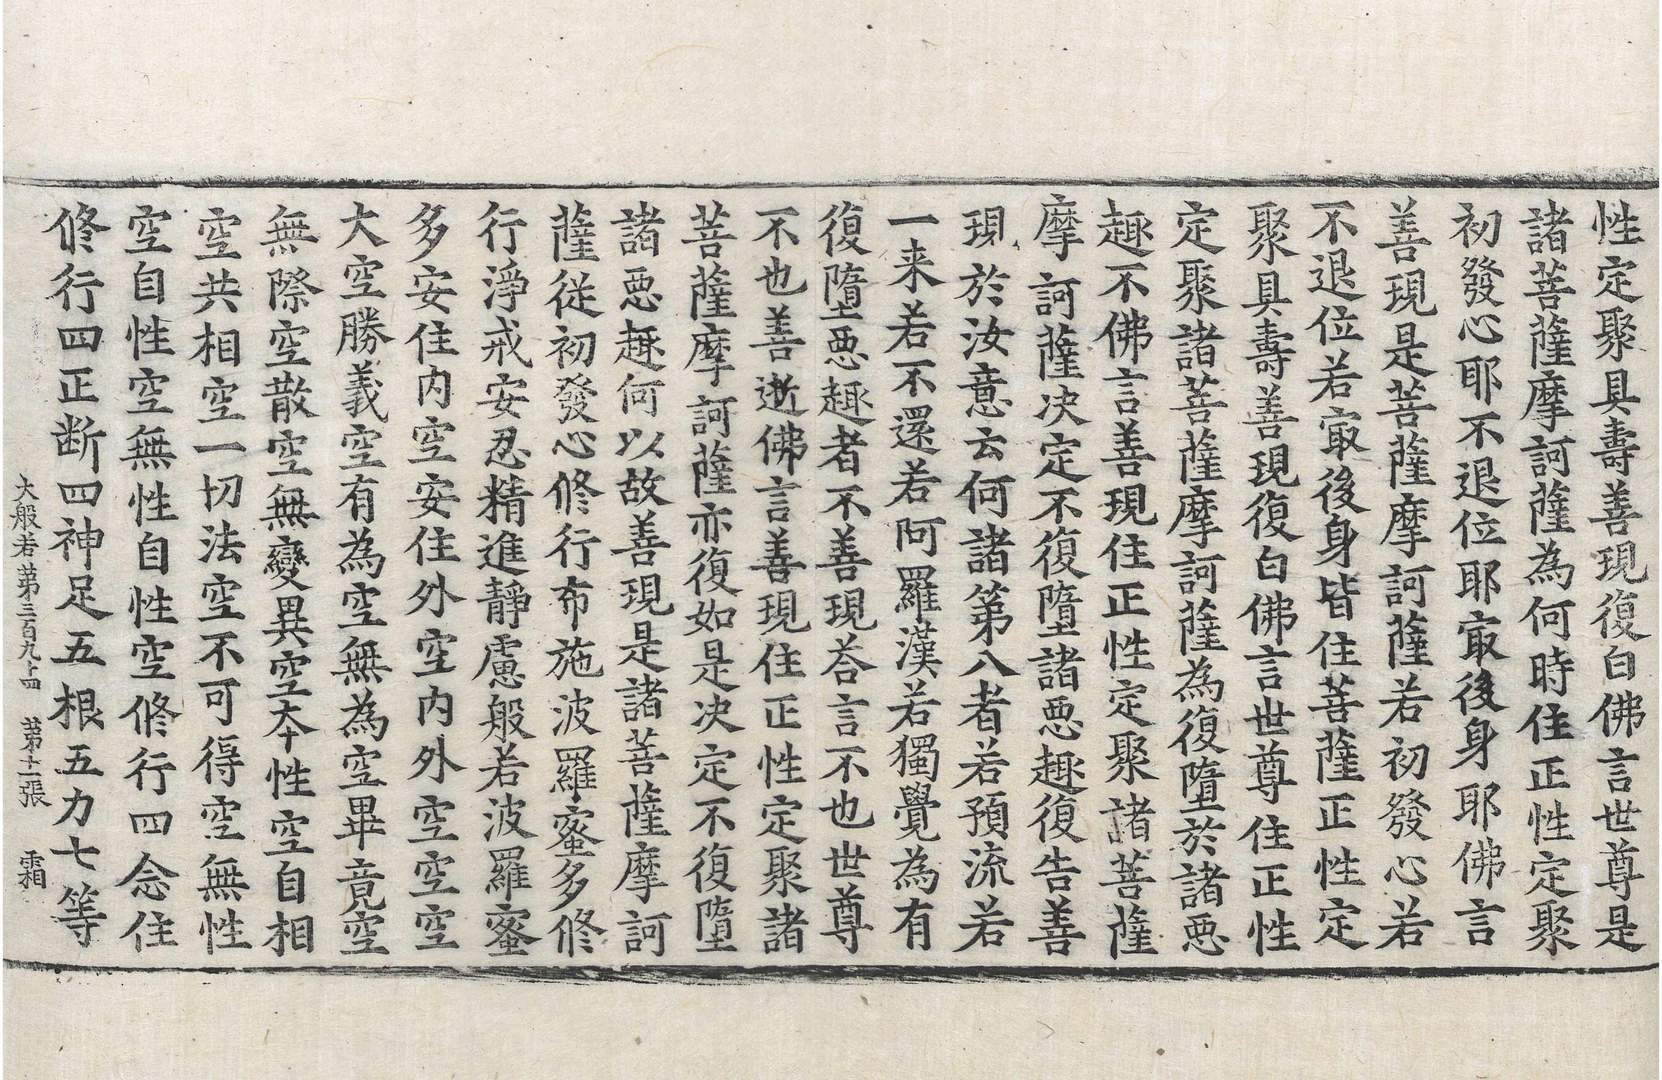 性定聚具壽善現復白佛言世尊是
諸菩薩摩訶薩為何時住正性定聚
初發心耶不退位耶㝡後身耶佛言
善現是菩薩摩訶薩若初發心若
不退位若㝡後身皆住菩薩正性定
聚具壽善現復白佛言世尊住正性
定聚諸菩薩摩訶薩為復墮於諸惡
趣不佛言善現住正性定聚諸菩薩
摩訶薩决定不復墮諸惡趣復告善
現於汝意云何諸第八者若預流若
一来若不還若阿羅漢若獨覺為有
復墮惡趣者不善現荅言不也世尊
不也善逝佛言善現住正性定聚諸
菩薩摩訶薩亦復如是决定不復墮
諸惡趣何以故善現是諸菩薩摩訶
薩從初發心修行布施波羅蜜多修
行淨戒安忍精進靜慮般若波羅蜜
多安住内空安住外空内外空空空
大空勝義空有為空無為空畢竟空
無際空散空無變異空本性空自相
空共相空一切法空不可得空無性
空自性空無性自性空修行四念住
修行四正断四神足五根五力七等
大般若第三百九十四　第十二張　霜